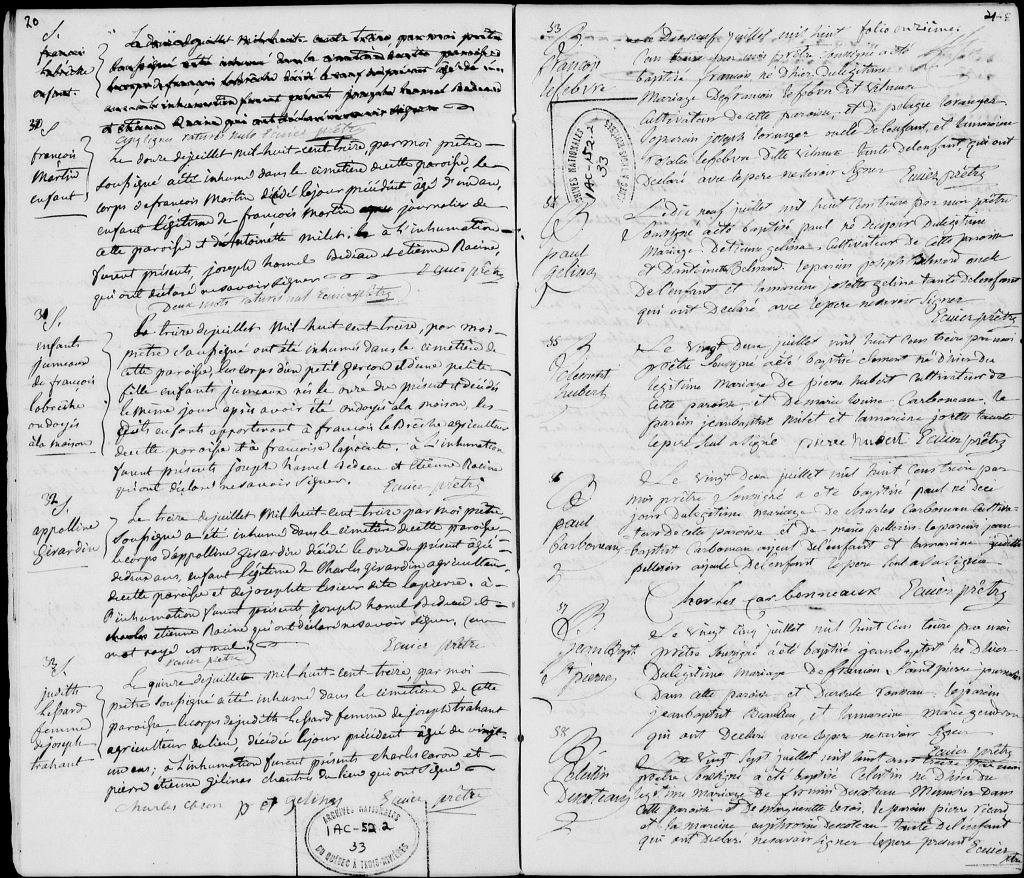 20
S.
francois
labrèche
enfant
30
S
françois
Martin
enfant
Le douze de juillet mil huit-cent-treize, par moi prêtre
soussigné a été inhumé dans le cimetière de cette paroisse, le
corps de francois Martin décédé le jour précédent âgé d'un an,
enfant légitime de françois Martin journalier de
cette paroisse et d'Antoinette Milet. à l'inhumation
furent présents, joseph hamel Bedeau et etienne Racine,
qui ont déclaré ne savoir signer. Ecuier prêtre
Deux mots raturés nul Ecuier prêtre
31
S.
enfants
jumeaux
de françois
labrèche
ondoyés
à la maison
Le treize de juillet mil huit-cent-treize, par moi
prêtre soussigné ont été inhumés dans le cimetière de
cette paroisse, les corps d'un petit garçon et d'une petite
fille enfants jumeaux nés le onze du présent et décédés
le même jour après avoir été ondoyés à la maison, les
dits enfants appartenant à francois la Brèche agriculteur
de cette paroisse et à françoise lapointe. à l'inhumation
furent présents joseph hamel Bedeau et Etienne Racine
qui ont déclaré ne savoir signer. Ecuier prêtre
32
S.
appolline
Girardin
Le treize de juillet mil huit-cent-treize par moi prêtre
soussigné a été inhumé dans le cimetière de cette paroisse
le corps d'appolline Girardin décédé le onze du présent âgée
de deux ans, enfant légitime de Charles Girardin agriculteur
de cette paroisse et de josephte lesieur dite lapierre. à
l'inhumation furent présents joseph hamel Bedeau et
etienne Racine qui ont déclaré ne savoir signer. (un
mot rayé est nul.) Ecuier prêtre
Ecuier prêtre
33
S
judith
Lessard
femme
de joseph
trahant
Le quinze de juillet mil huit-cent-treize par moi
prêtre soussigné a été inhumé dans le cimetière de cette
paroisse, le corps de judith Lessard femme de joseph trahant
agriculteur du lieu, décédée le jour précédent âgée de vingt
un ans; à l'inhumation furent présents charles caron et
pierre etienne gélinas chantres du lieu qui ont signé
Charles Caron P et gelinas Ecuier prêtre
ARCHIVES NATIONALES
1AC-52.2
33
DU QUÉBEC À TROIS-RIVIÈRES
21
53
B
francois
lefebvre
Le Dixneuf juillet mil huit folio onzième
Cent treize par moi prêtre soussigné a été
baptisé francois né d'hier du légitime
Mariage de francois lefebvre de Vilmur
cultivateur de cette paroisse, et de pelagie loranger
le parain joseph loranger oncle de l'enfant, et la maraine
rosalie lefebvre dite Vilmur tante de l'enfant qui ont
Declaré avec le pere ne savoir signer Ecuier prêtre
ARCHIVES NATIONALES
1AC-52.2
33
DU QUÉBEC À TROIS-RIVIÈRES
54
B
paul
gelina
Le dix neuf juillet mil huit cent treize par moi prêtre
soussigné a été baptisé paul né ce jour du legitime
Mariage d'etienne gelina cultivateur de cette paroisse
et d'antoinette Belmard. le parain joseph Belmard oncle
De l'enfant et la maraine josette gelina tante de l'enfant
qui ont Declaré avec le pere ne savoir signer
Ecuier prêtre
55
B
clement
hubert
Le Vingt deux juillet mil huit cens treize par moi
prêtre soussigné a été baptisé clement né d'hier du
legitime mariage De pierre hubert cultivateur de
cette paroisse, et De marie louise Carboneau. le
parain jean baptiste milet et la maraine josette
le pere seul a signé pierre hubert Ecuier prêtre
56
B
paul
Carboneau
Le Vingt deux juillet mil huit cens treize par
moi prêtre soussigné a été baptisé paul né de ce
jour du legitime mariage de charles Carboneau cultiva-
teur De cette paroisse et de marie pellerin. le parain jean
baptist Carboneau ayeul de l'enfant et la maraine judith
pellerin ayeule De l'enfant le pere seul a sû signer
Charles carbonneaux Ecuier prêtre
57
B.
jean Bapte
St pierre
Le Vingt Cinq juillet mil huit cens treize par moi
prêtre soussigné a été baptisé jean baptist né d'hier
Du legitime mariage de francois Saint pierre journalier
Dans cette paroisse et Dursule rousseau. le parain
jean baptist Beaulieu, et la maraine marie gendron
qui ont Declaré avec le pere ne savoir signer
Ecuier prêtre
58
B
Celestin
Decoteaux
Le Vingt Sept juillet mil huit cent treize par moi
prêtre soussigné a été baptisé Celestin né d'hier du
legitime mariage De firmin Decoteau Menuisier dans
cette paroisse et de marguerite deroi. le parain pierre ricard
et la maraine euphrosin Decoteau tante de l'enfant
qui ont Declaré ne savoir signer le pere present Ecuier
ptre